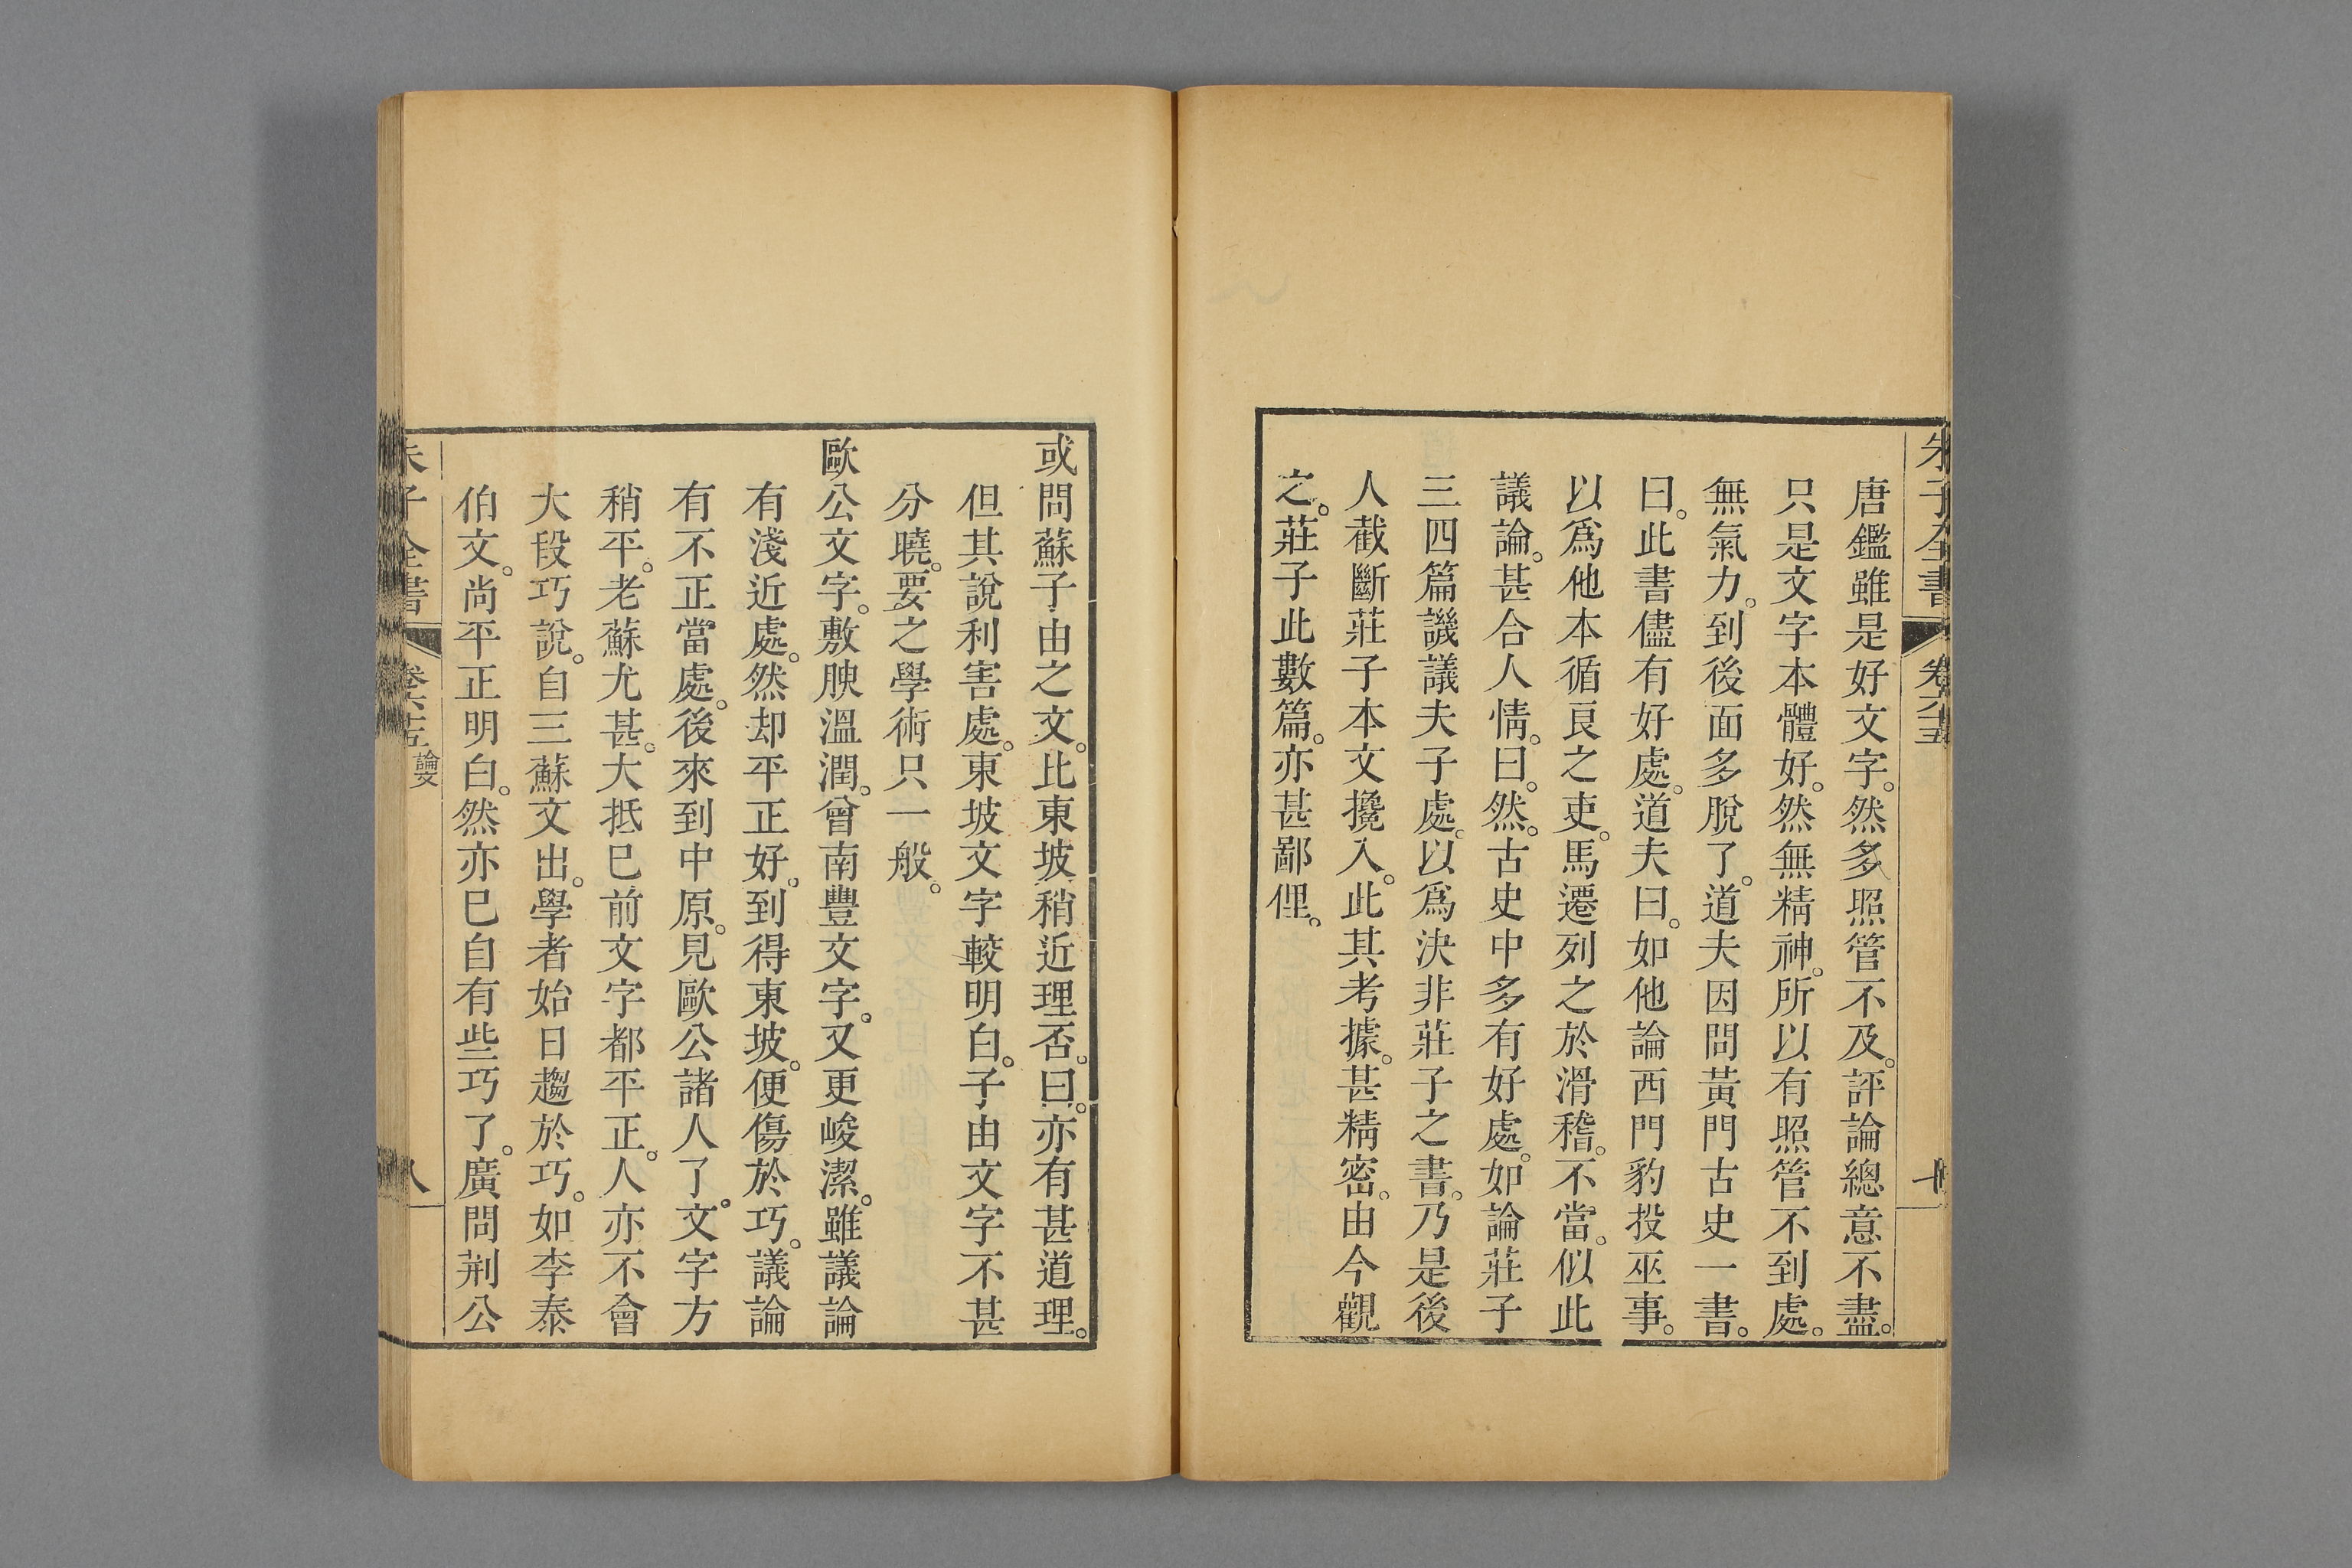 朱子全書 卷六十五
唐鑑雖是好文字。然多照管不及。評論總意不盡。
只是文字本體好。然無精神。所以有照管不到處。
無氣力。到後面多脫了。道夫因問黃門古史一書。
曰。此書儘有好處。道夫曰。如他論西門豹投巫事。
以爲他本循良之吏。馬遷列之於滑稽。不當。似此
議論。甚合人情。曰。然。古史中多有好處。如論莊子
三四篇譏議夫子處。以爲決非莊子之書。乃是後
人截斷莊子本文攙入。此其考據。甚精密。由今觀
之。莊子此數篇。亦甚鄙俚。
或問蘇子由之文。比東坡稍近理否。曰。亦有甚道理。
但其說利害處。東坡文字較明白。子由文字不甚
分曉。要之學術只一般。
歐公文字。敷腴溫潤。曾南豐文字。又更峻潔。雖議論
有淺近處。然却平正好。到得東坡。便傷於巧。議論
有不正當處。後來到中原。見歐公諸人了。文字方
稍平。老蘇尤甚。大抵巳前文字都平正。人亦不會
大段巧說。自三蘇文出。學者始日趨於巧。如李泰
伯文。尚平正明白。然亦巳自有些巧了。廣問荆公
朱子全書 卷六十五 論文 八